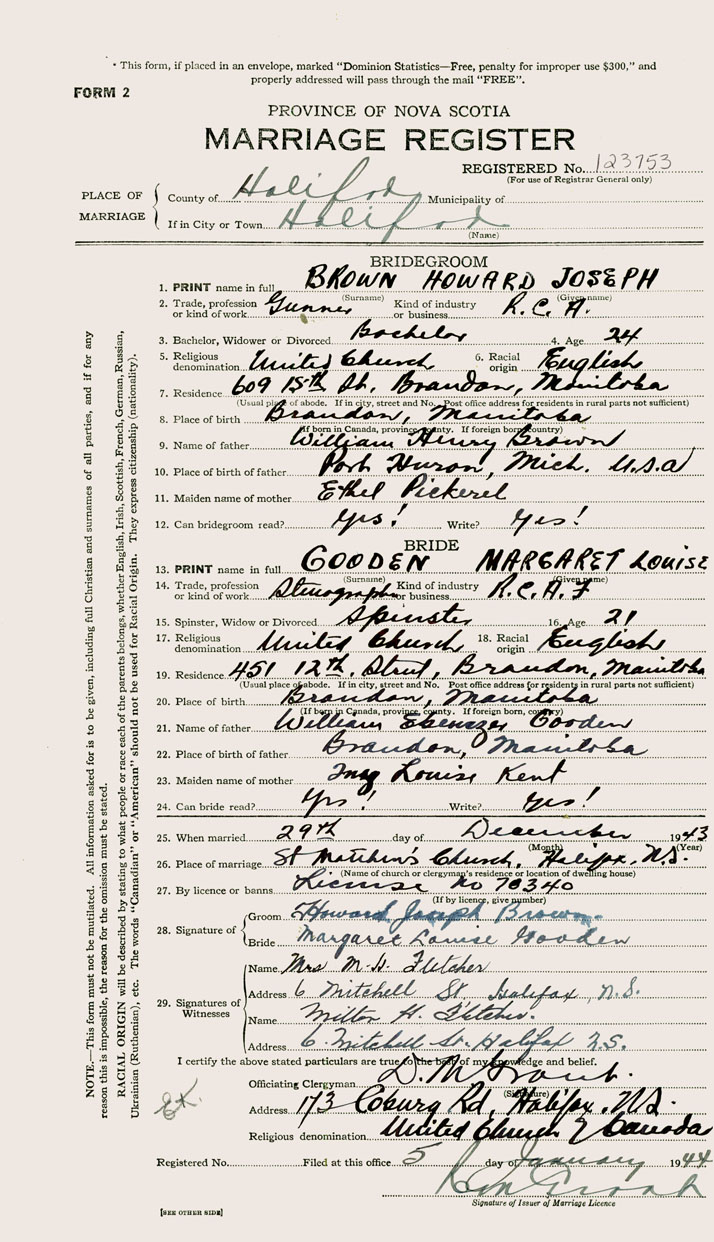 * This form, if placed in an envelope, marked "Dominion Statistics—Free, penalty for improper use $300," and
properly addressed will pass through the mail "FREE".
FORM 2
PROVINCE OF NOVA SCOTIA
MARRIAGE REGISTER
REGISTERED No. 123753
(For use of Registrar General only)
PLACE OF MARRIAGE
County of Halifax Municipality of
If in City or Town Halifax
(Name)
BRIDEGROOM
1. PRINT name in full BROWN HOWARD JOSEPH
(Surname) (Given name)
2. Trade, profession or kind of work Gunner Kind of industry or business R.C.A.
3. Bachelor, Widower or Divorced Bachelor 4. Age 24
5. Religious denomination United Church 6. Racial origin English
7. Residence 609 15th St. Brandon, Manitoba
(Usual place of abode. If in city, street and No. Post office address for residents in rural parts not sufficient)
8. Place of birth Brandon, Manitoba
(If born in Canada, province, county. If foreign born, country)
9. Name of father William Henry Brown
10. Place of birth of father Port Huron, Mich. U.S.A
11. Maiden name of mother Ethel Pickerel
12. Can bridegroom read? Yes! Write? Yes!
BRIDE
13. PRINT name in full GOODEN MARGARET LOUISE
(Surname) (Given name)
14. Trade, profession or kind of work Stenographer Kind of industry or business R.C.A.F
15. Spinster, Widow or Divorced Spinster 16. Age 21
17. Religious denomination United Church 18. Racial origin English
19. Residence 451 12th. Street, Brandon, Manitoba
(Usual place of abode. If in city, street and No. Post office address for residents in rural parts not sufficient)
20. Place of birth Brandon, Manitoba
(If born in Canada, province, county. If foreign born, country)
21. Name of father William Ebenezer Gooden
22. Place of birth of father Brandon, Manitoba
23. Maiden name of mother Louise Kent
24. Can bride read? Yes! Write? Yes!
25. When married 29th day of December 1943
(Month) (Year)
26. Place of marriage St Matthew's Church, Halifax, N.S.
(Name of church or clergyman's residence or location of dwelling house)
27. By licence or banns License No 78340
(If by licence, give number)
28. Signature of
Groom Howard Joseph Brown
Bride Margaret Louise Gooden
29. Signatures of Witnesses
Name Mrs M. H. Fletcher
Address 6 Mitchell St. Halifax, N.S.
Name Milton H. Fletcher.
Address 6 Mitchell St. Halifax N.S.
I certify the above stated particulars are true to the best of my knowledge and belief.
Officiating Clergyman
(Signature)
Address 173 Coburg Rd, Halifax, N.S.
Religious denomination United Church of Canada
Registered No. Filed at this office 5 day of January 1944
Signature of Issuer of Marriage Licence
[SEE OTHER SIDE]
NOTE.—This form must not be mutilated. All information asked for is to be given, including full Christian and surnames of all parties, and if for any
reason this is impossible, the reason for the omission must be stated.
RACIAL ORIGIN will be described by stating to what people or race each of the parents belongs, whether English, Irish, Scottish, French, German, Russian,
Ukrainian (Ruthenian), etc. The words "Canadian" or "American" should not be used for Racial Origin. They express citizenship (nationality).